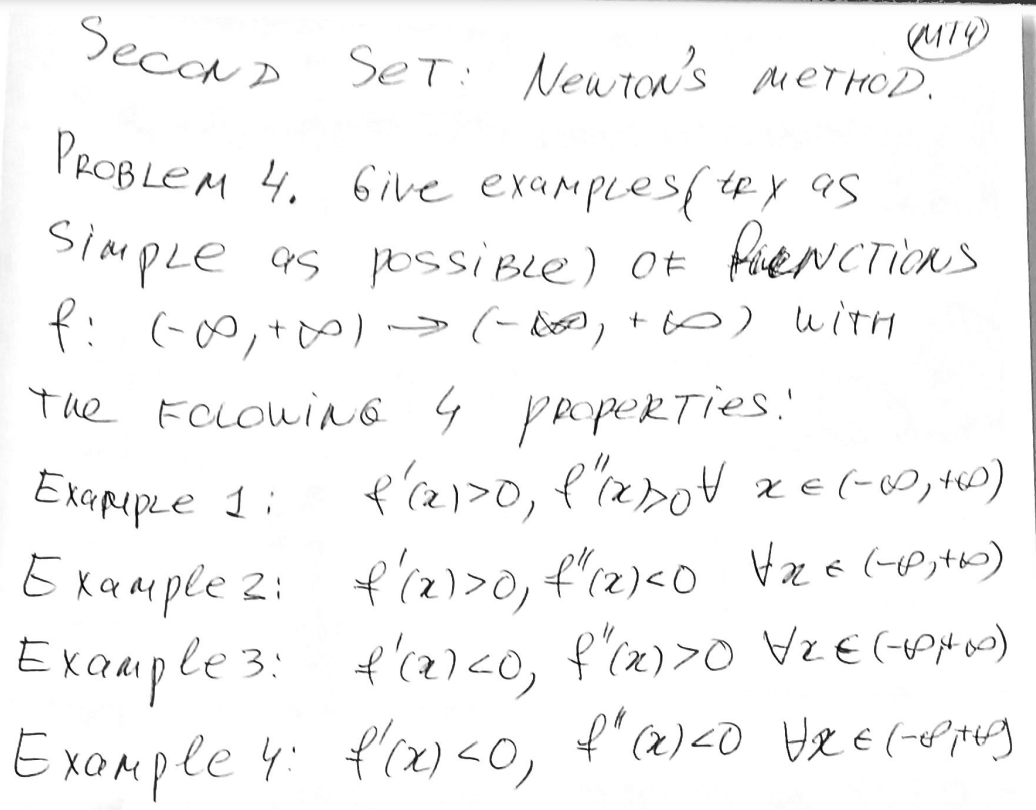 (MT4)
SECOND SET: NEWTON'S METHOD.
PROBLEM 4. Give examples (try as
simple as possible) of functions
f: (-∞,+∞) → (-∞, +∞) with
the folowing 4 properties:
Example 1: f'(x)>0, f''(x)>0 ∀ x ∈ (-∞,+∞)
Example 2: f'(x)>0, f''(x)<0 ∀x ∈ (-∞,+∞)
Example 3: f'(x)<0, f''(x)>0 ∀x ∈ (-∞,+∞)
Example 4: f'(x)<0, f''(x)<0 ∀x ∈ (-∞,+∞)